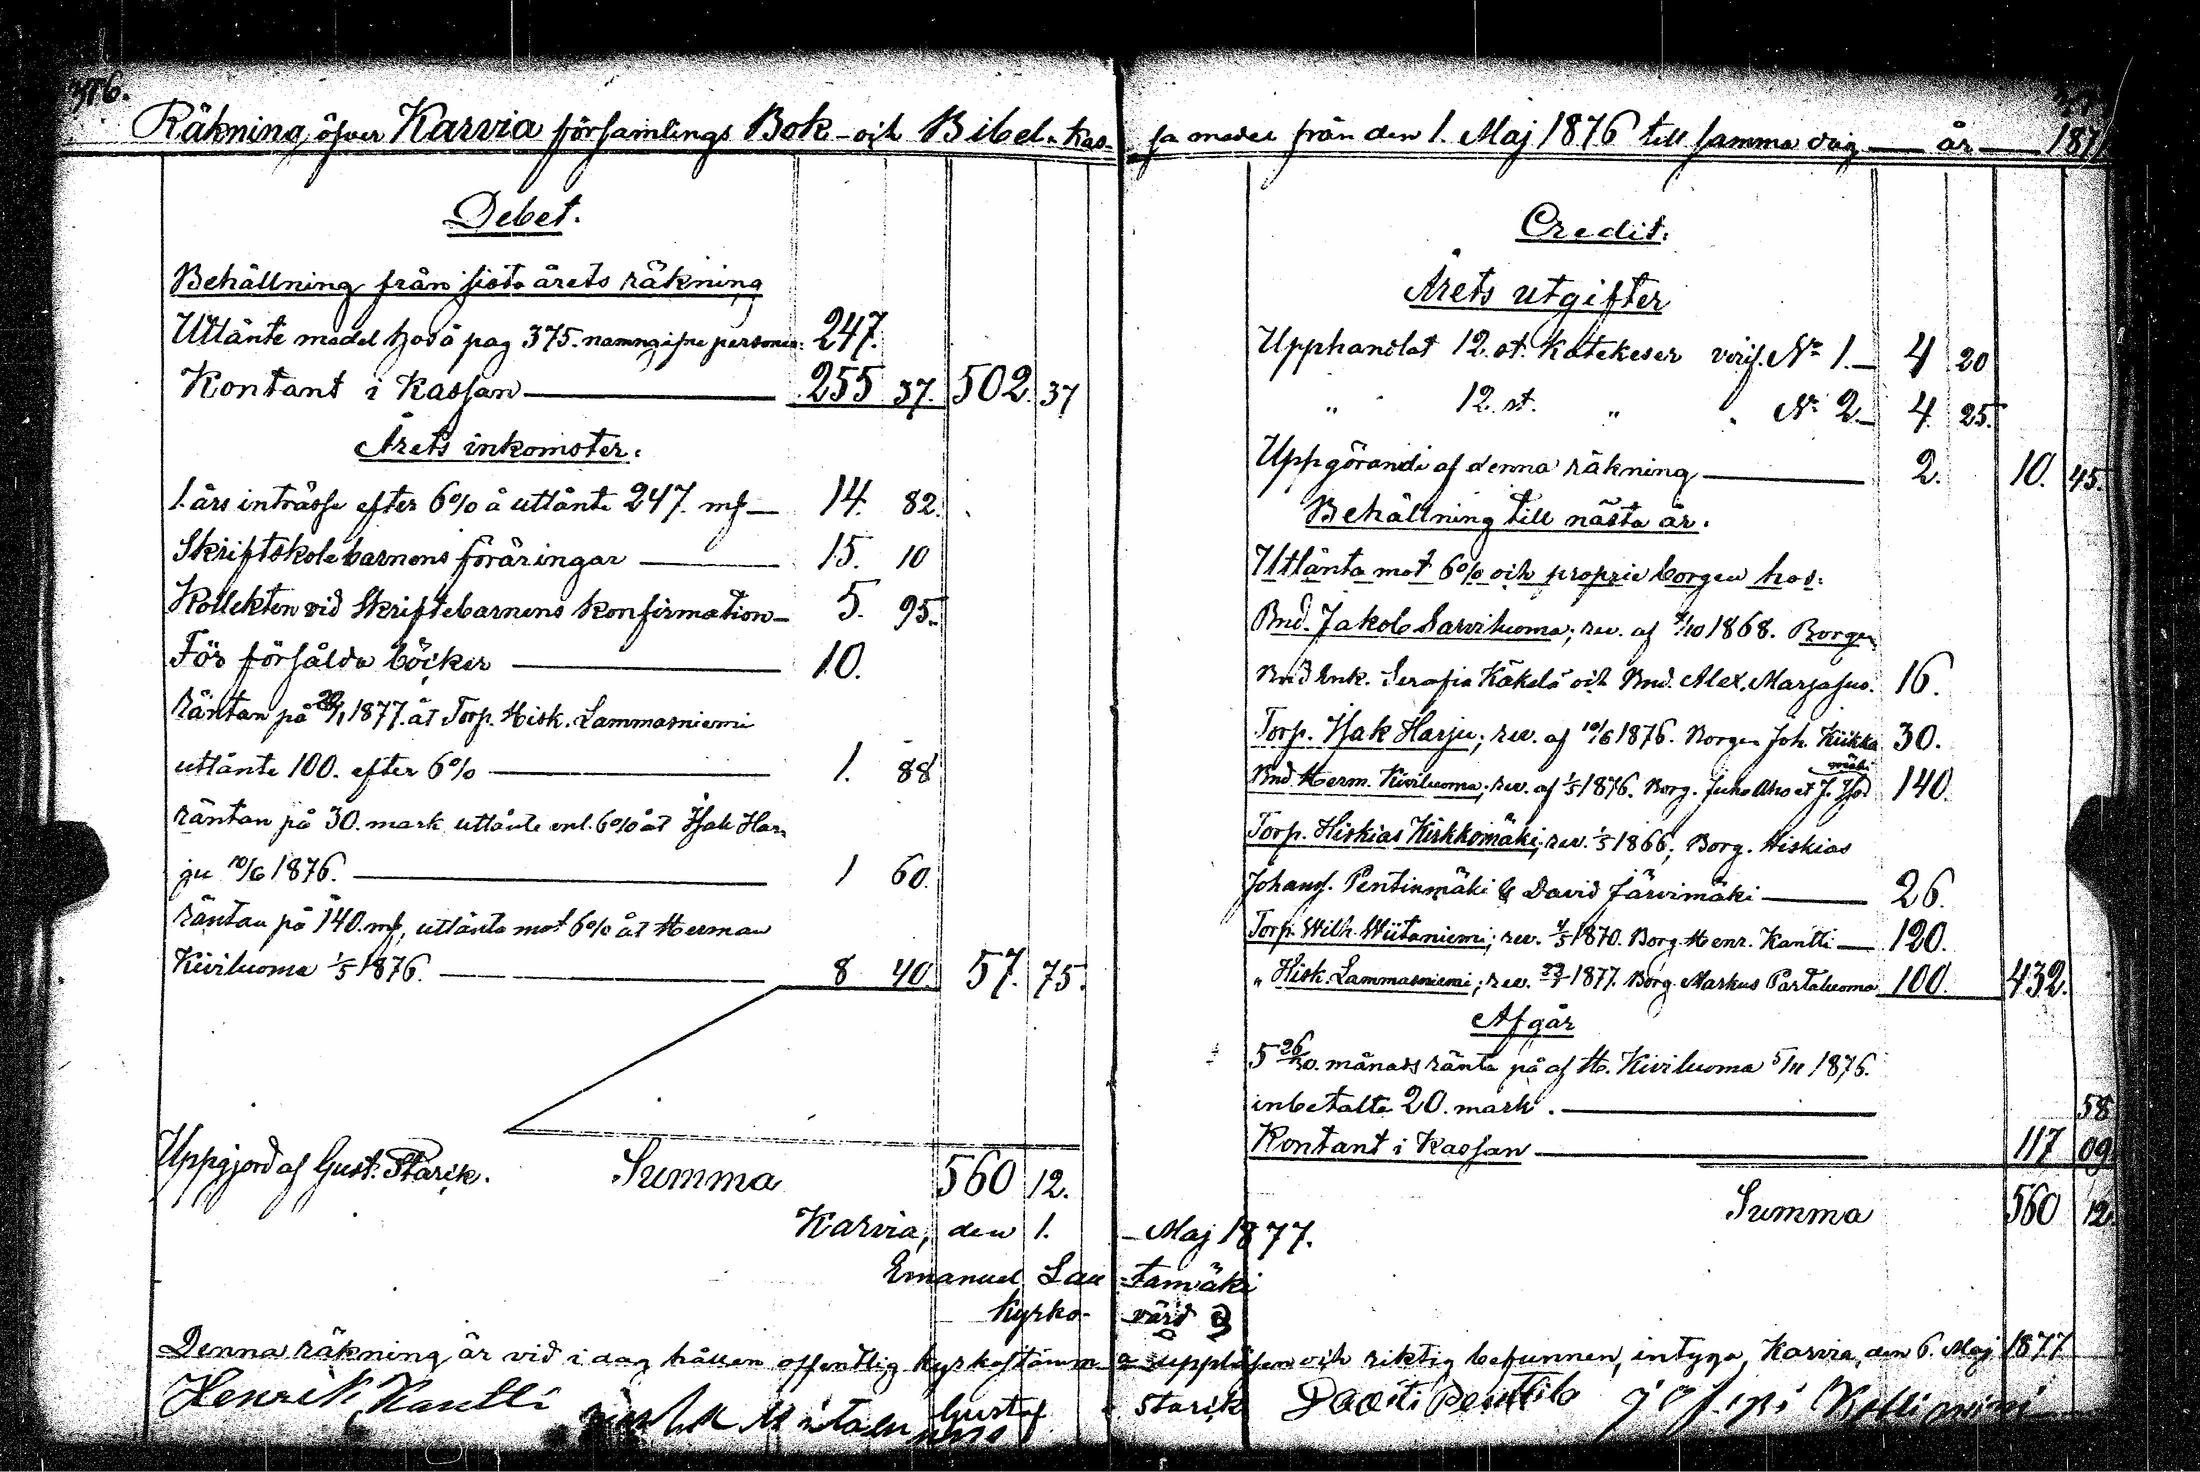 376.
Räkning öfver Karvia församlings Bok- och Bibel-kas-
Debet.
Behållning från sista årets räkning
Utlånte medel hos å pag 375. namngifne personer: 247.
Kontant i Kassan 255 37. 502. 37
Årets inkomster.
1. års inträsse efter 6% å utlånte 247. mf 14. 82.
Skriftskolebarnens föräringar 15. 10
Kollekten vid Skriftebarnens konfirmation 5. 95.
För försålda böcker 10.
Räntan på 1877. åt Torp. Hisk. Lammasniemi
utlånte 100. efter 6% 1. 88
räntan på 30. mark utlånte enl. 6% åt Isak Har-
ju 10/6 1876. 1 60.
räntan på 140. mf, utlånte mot 6% åt Herman
Kiviluoma 1/5 1876. 8 40. 57. 75.
Uppgjord af Gust. Starck. Summa 560 12.
sa medel från den 1. Maj 1876 till samma dag år
Credit.
Årets utgifter
Upphandlat 12. st. Katekeser verif. No 1. 4 20
" 12. st. " " No 2. 4. 25.
Uppgörandi af denna räkning 2. 10. 45.
Behållning till nästa år.
Utlånta mot 6% och proprie borgen hos:
Bnd. Jakob Sarviluoma; rev. af 1868. Borgen
Bnd Enk. Serafia Käkelä och Bnd. Alex. 16.
Torp. Isak Harju; rev. af 10/6 1876. Borgen Joh. Kiikka 30.
mäki
Bnd Herm. Kiviluoma; rev. af 1/5 1876. Borg. Juho Aho et J. 140.
Torp. Hiskias Kirkkomäki; rev. 1/5 1866; Borg. Hiskias
Johans. Pentinmäki & David Järvimäki 26.
Torp. Wilh. Wiitaniemi; rev. 1870. Borg. Henr. Kantti 120.
" Hisk. Lammasniemi; rev. 1877. Borg. Markus Partaluoma 100. 432.
Afgår
5 26/30. månads ränta på af H. Kiviluoma 5/11 1876.
inbetalte 20. mark. 58
Kontant i Kassan 117 09
Summa 560 12.
Karvia, den 1. Maj 1877.
Emanuel Lautamäki
Kyrkovärd
Denna räkning är vid i dag hållen offentlig kyrkostämma uppläsen och riktig befunnen, intyga, Karvia, den 6. Maj 1877
Henrik Kantti Gustaf Starck